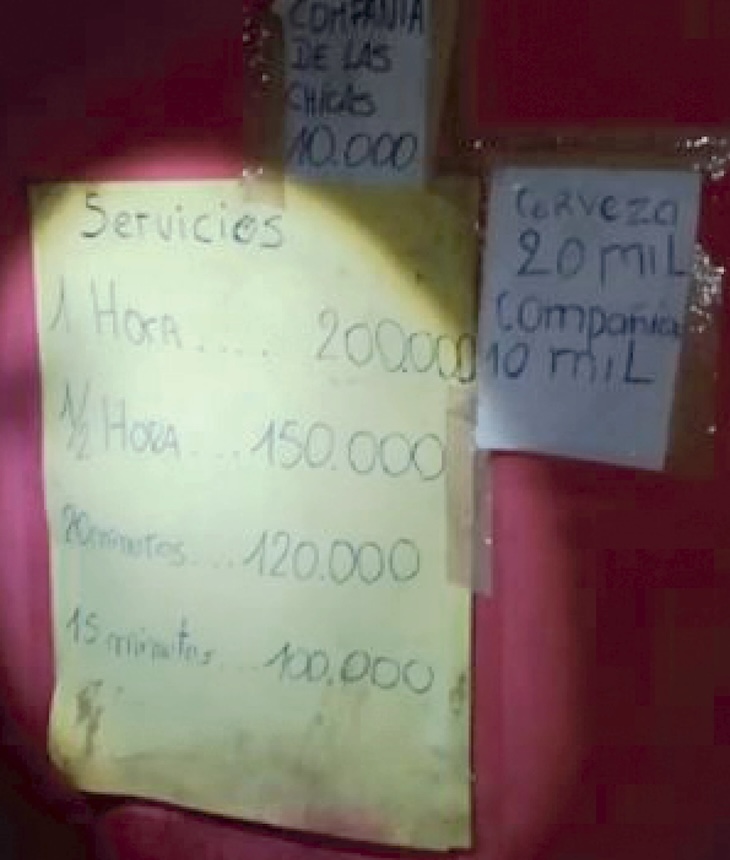 COMPAÑIA
DE LAS
CHICAS
10.000
Servicios
1 HORA..... 200.000
1/2 HORA....150.000
20minutos....120.000
15 minutos...100.000
CeRVeza
20 miL
Compañia
10 miL